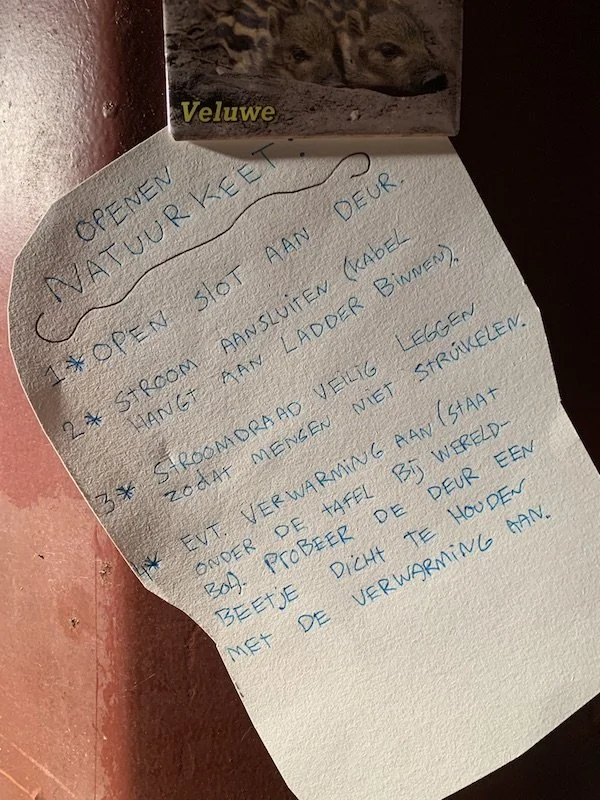 Veluwe
OPENEN
NATUURKEET!
1* OPEN SLOT AAN DEUR.
2* STROOM AANSLUITEN (KABEL
HANGT AAN LADDER BINNEN).
3* STROOMDRAAD VEILIG LEGGEN
ZODAT MENSEN NIET STRUIKELEN.
4* EVT. VERWARMING AAN (STAAT
ONDER DE TAFEL BIJ WERELD-
BOL). PROBEER DE DEUR EEN
BEETJE DICHT TE HOUDEN
MET DE VERWARMING AAN.